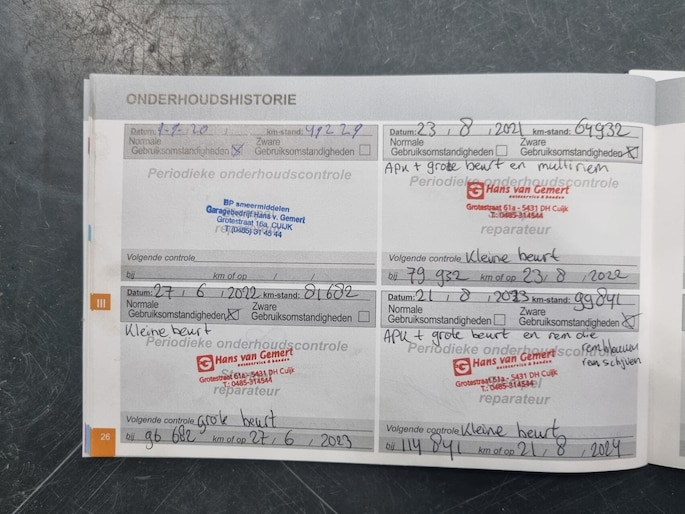 ONDERHOUDSHISTORIE
Datum: 1-9-20 , km-stand: 49229
Normale Gebruiksomstandigheden ☒ Zware Gebruiksomstandigheden ☐
Periodieke onderhoudscontrole
BP smeermiddelen
Garagebedrijf Hans v. Gemert
Grotestraat 16a, CUIJK
T. (0485) 31 45 44
reparateur
Volgende controle
bij km of op / /
Datum: 23 , 8 , 2021 km-stand: 64932
Normale Gebruiksomstandigheden ☐ Zware Gebruiksomstandigheden ☒
APK + grote beurt en multiriem
Periodieke onderhoudscontrole
Hans van Gemert
autoservice & banden
Grotestraat 61a - 5431 DH Cuijk
T.: 0485-314544
reparateur
Volgende controle Kleine beurt
bij 79 932 km of op 23 , 8 , 2022
III
Datum: 27 , 6 , 2022 km-stand: 81682
Normale Gebruiksomstandigheden ☒ Zware Gebruiksomstandigheden ☐
Kleine beurt
Periodieke onderhoudscontrole
Hans van Gemert
autoservice & banden
Grotestraat 61a - 5431 DH Cuijk
T.: 0485-314544
reparateur
Volgende controle grote beurt
bij 96 682 km of op 27 , 6 , 2023
Datum: 21 , 8 , 2023 km-stand: 99841
Normale Gebruiksomstandigheden ☐ Zware Gebruiksomstandigheden ☒
APK + grote beurt en rem
remblokken
remschijven
Periodieke onderhoudscontrole
Hans van Gemert
autoservice & banden
Grotestraat 61a - 5431 DH Cuijk
T.: 0485-314544
reparateur
Volgende controle Kleine beurt
bij 114 841 km of op 21 , 8 , 2024
26